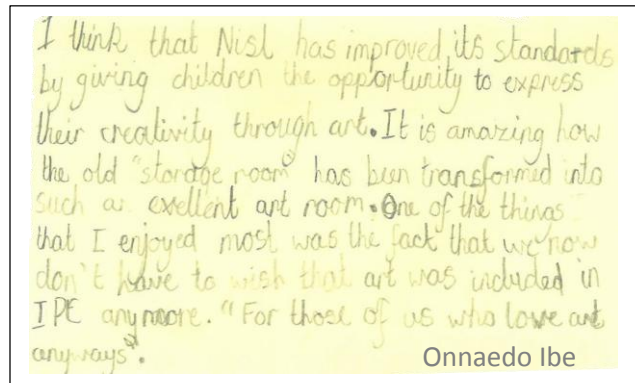 I think that Nisl has improved its standards
by giving children the opportunity to express
their creativity through art. It is amazing how
the old "storage room" has been transformed into
such an exellent art room. One of the things
that I enjoyed most was the fact that we now
don't have to wish that art was included in
IPE anymore. "For those of us who love art
anyways".
Onnaedo Ibe